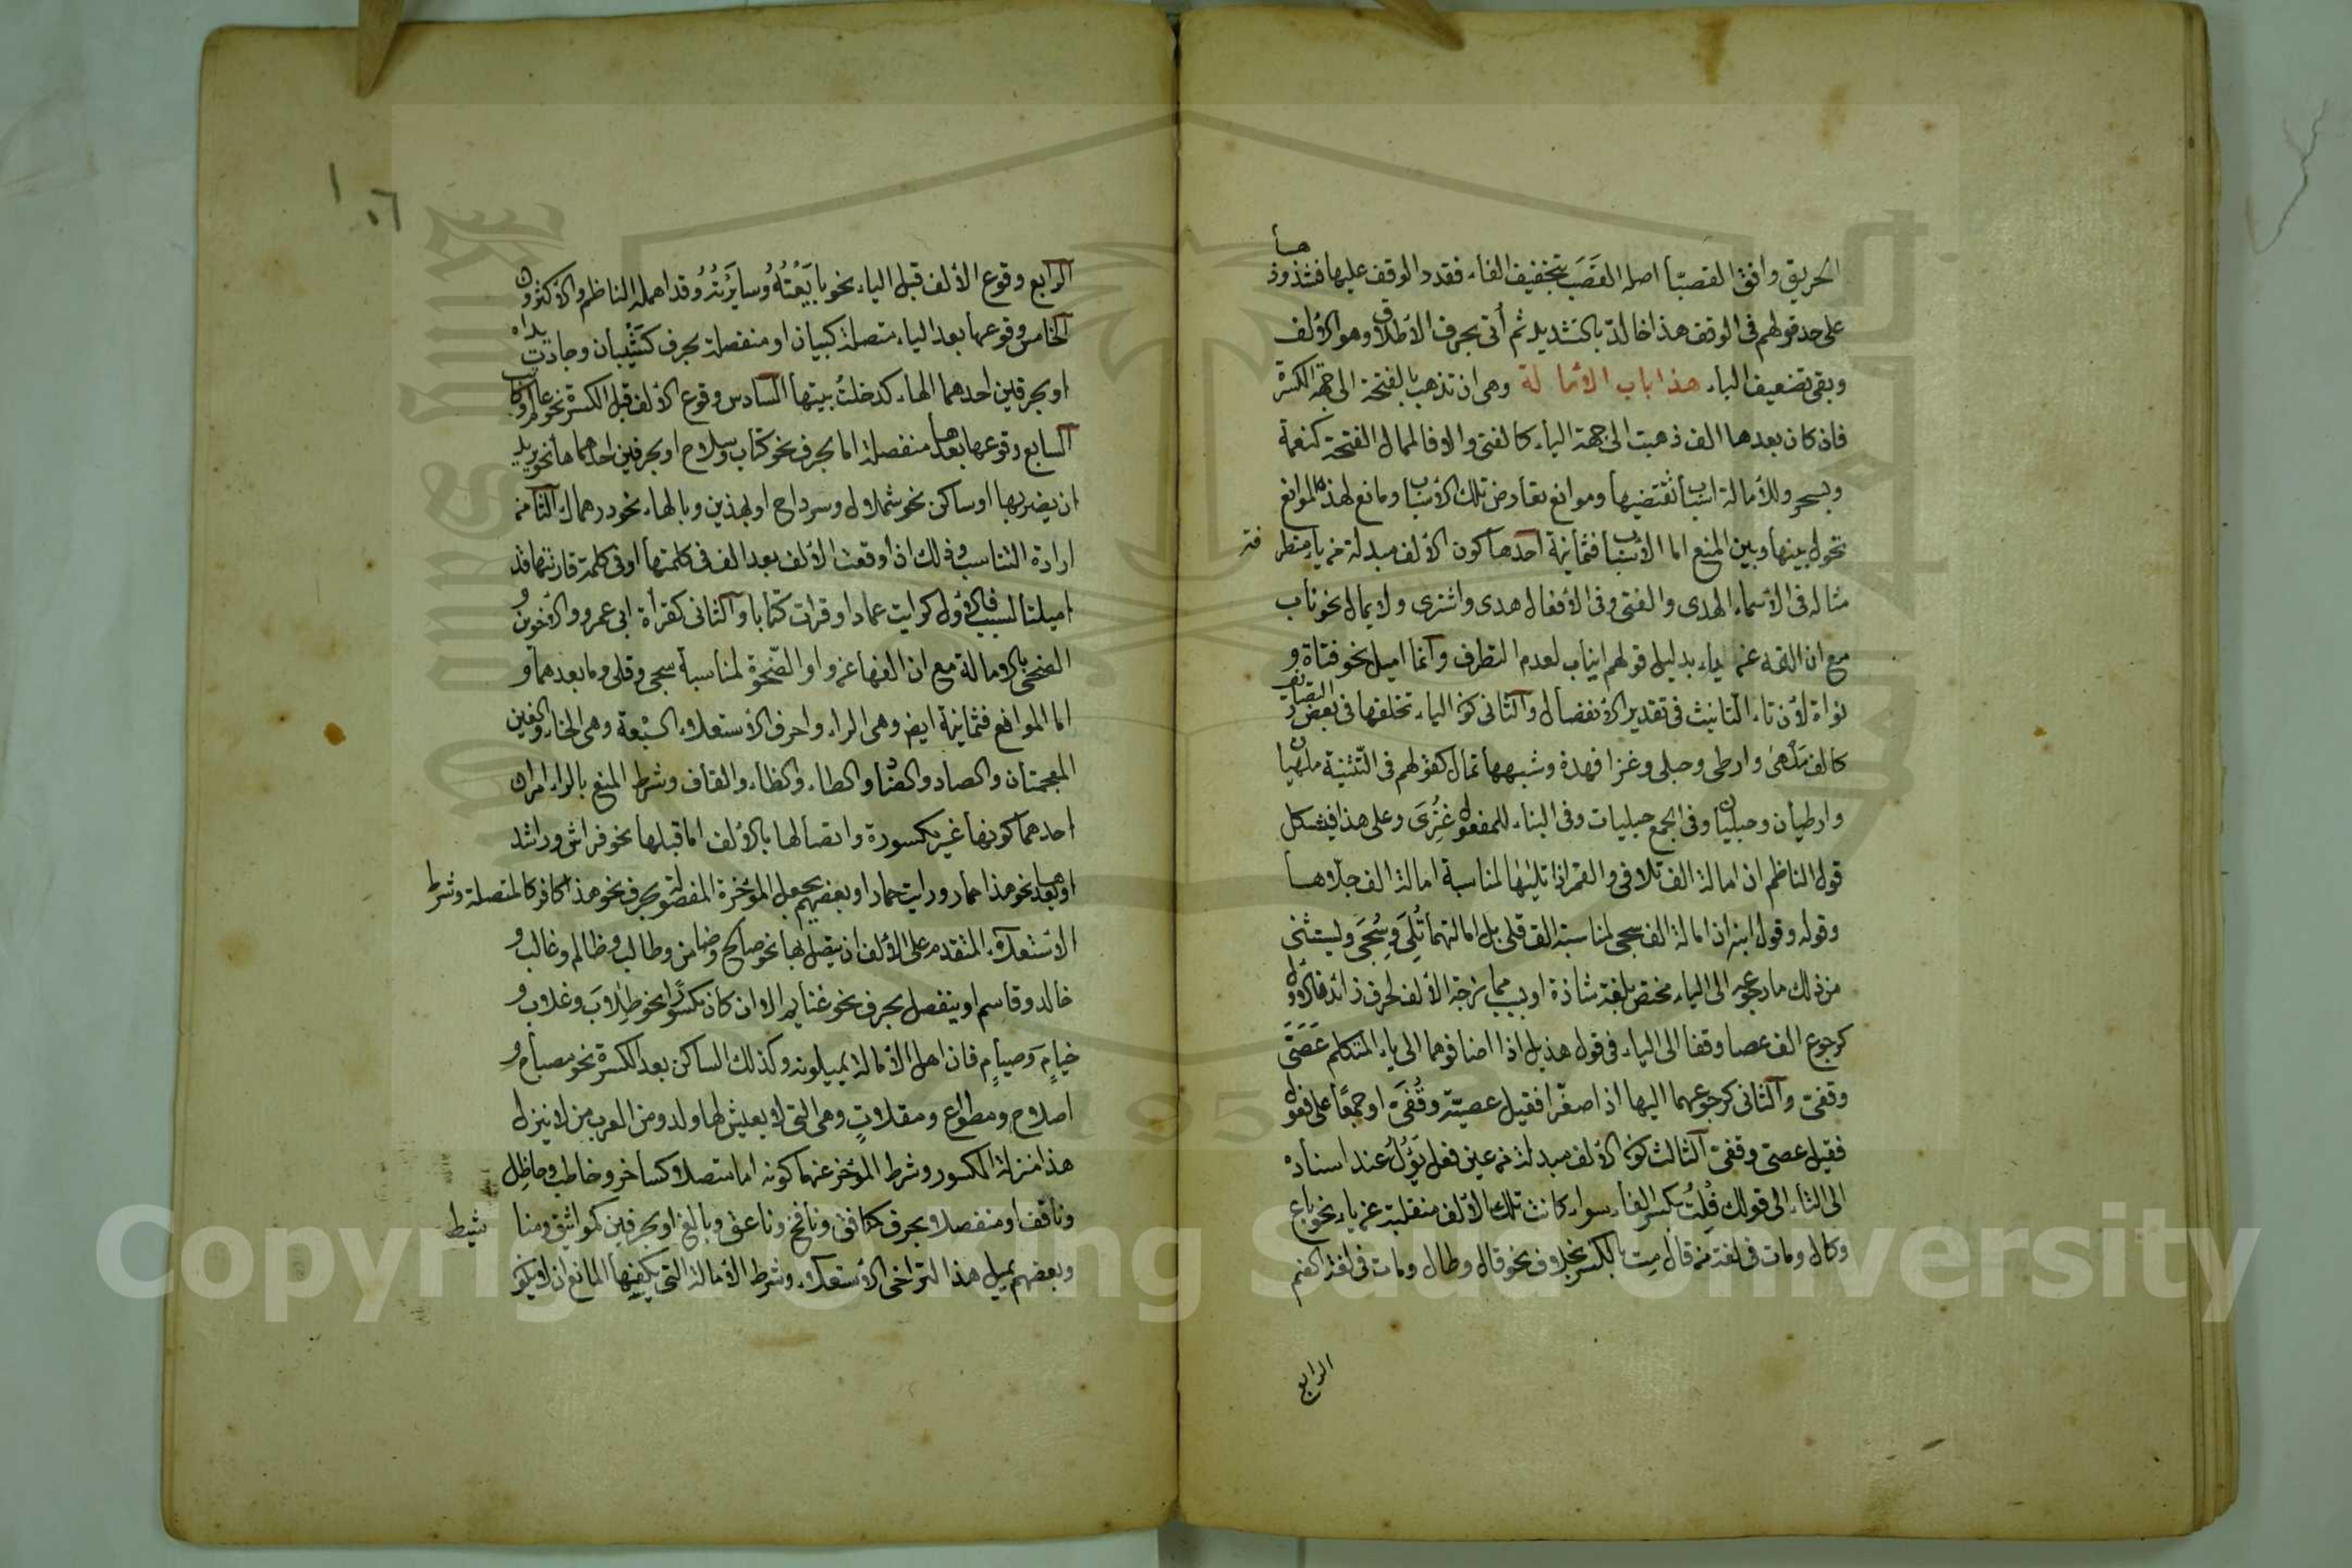 الحريق وافق القصبّا اصله القَصَبَ بتخفيف الباء فقدر الوقف عليها فشددها
على حد قولهم فى الوقف هذا خالدّ بالتشديد ثم أتى بحرف الأطلاق وهو الألف
وبقى تضعيف الباء هذا باب الأمالة وهى ان تذهب بالفتحة الى جهة الكسرة
فان كان بعدها الف ذهبت الى جهة الياء كالفتى والا فالممال الفتحة كنعمة
وبسحر وللأمالة اسباب تقتضيها وموانع تعارض تلك الأسباب ومانع لهذه الموانع
تحول بينها وبين المنع اما الأسباب فثمانية احدها كون الألف مبدلة من ياء متطرفة
مثاله فى الأسماء الهدى والفتى وفى الأفعال هدى واشترى ولا يمال نحو ناب
مع ان الفه عن ياء بدليل قولهم انياب لعدم التطرف وانما اميل نحو فتاة و
نواة لأن تاء التانيث فى تقدير الأنفصال والثانى كون الياء تخلفها فى بعض التصاريف
كالف مَلْهىً وارطى وحبلى وغزا فهذه وشبهها تمال كقولهم فى التثنية ملهيان
وارطيان وحبليان وفى الجمع حبليات وفى البناء للمفعول غُزِىَ وعلى هذا فيشكل
قول الناظم ان امالة الف تلا فى والقمر اذا تليها لمناسبة امالة الف جلاها
وقوله وقول ابنه ان امالة الف سجى لمناسبة الف قلى بل امالتهما تُلِىَ وسُجِىَ ويستثنى
من ذلك ما رجوعه الى الياء مختص بلغة شاذة او بسبب ممازجة الألف لحرف زائد فالاول
كرجوع الف عصا وقفا الى الياء فى قول هذيل اذا اضافوهما الى ياء المتكلم عَصَىَّ
وقفىّ والثانى كرجوعهما اليها اذا صغّرا فقيل عصيّة وقُفَىّ او جمعًا على فعول
فقيل عصىّ وقفىّ الثالث كون الألف مبدلة من عين فعل يَؤُلُ عند اسناده
الى التاء الى قولك فِلْتُ بكسر الفاء سواء كانت تلك الألف منقلبة عن ياء نحو باع
وكال ومات فى لغة من قال مِتّ بالكسر بخلاف نحو قال وطال ومات فى لغة الضم
الرابع
١٠٦
الرابع وقوع الألف قبل الياء نحو بايَعْتُهُ وسايَرْتُهُ وقد اهمله الناظم والاكثرون
الخامس وقوعها بعد الياء متصلة كبيان او منفصلة بحرف كشَيْبان وجادت يداه
او بحرفين احدهما الهاء كدخلتُ بيتها السادس وقوع الألف قبل الكسرة نحو عالم وكاتب
السابع وقوعها بعدها منفصلة اما بحرف نحو كتاب وسلاح او بحرفين احدهما هاء نحو يريد
ان يضربها او ساكن نحو شملال وسرداح او بهذين وبالهاء نحو درهماك الثامن
ارادة التناسب وذلك اذا وقعت الألف بعد الف فى كلمتها او فى كلمة قارنتها قد
اميلتا لسبب فالاول كرايت عمادا وقرات كتابا والثانى كقراة ابى عمرو والأخوين و
الضحى بالامالة مع ان الفها عن واو الضّحوة لمناسبة سجى وقلى وما بعدهما و
اما الموانع فثمانية ايضا وهى الراء واحرف الأستعلاء السّبعة وهى الخاء والغين
المعجمتان والصاد والضاد والطاء والظاء والقاف وشرط المنع بالراء امران
احدهما كونها غير مكسورة واتصالها بالألف اما قبلها نحو فراش وراشد
او بعدها نحو هذا حمار ورايت حمارا وبعضهم يجعل المؤخرة المفصولة بحرف نحو هذا كافر كالمتصلة وشرط
الاستعلاء المتقدم على الألف ان يتصل بها نحو صالح وضامن وطالب وظالم وغالب و
خالد وقاسم او ينفصل بحرف نحو غنايم الا ان كان مكسورا نحو طِلابَ وغلاب و
خيامٍ وصيامٍ فان اهل الأمالة يميلونه وكذلك الساكن بعد الكسرة نحو مصباح و
اصلاح ومطواع ومقلاتٍ وهى التى لا يعيش لها ولد ومن العرب من لا ينزل
هذا منزلة المكسور وشرط المؤخر عنها كونه اما متصلا كساخر وخاطب وحاظل
وناقف او منفصلا بحرف كنافق ونافخ وناعق وبالغ او بحرفين كمواثيق ومناشيط
وبعضهم يميل هذا لتراخى الأستعلاء وشرط الأمالة التى يكفيها المانع ان لا يكون